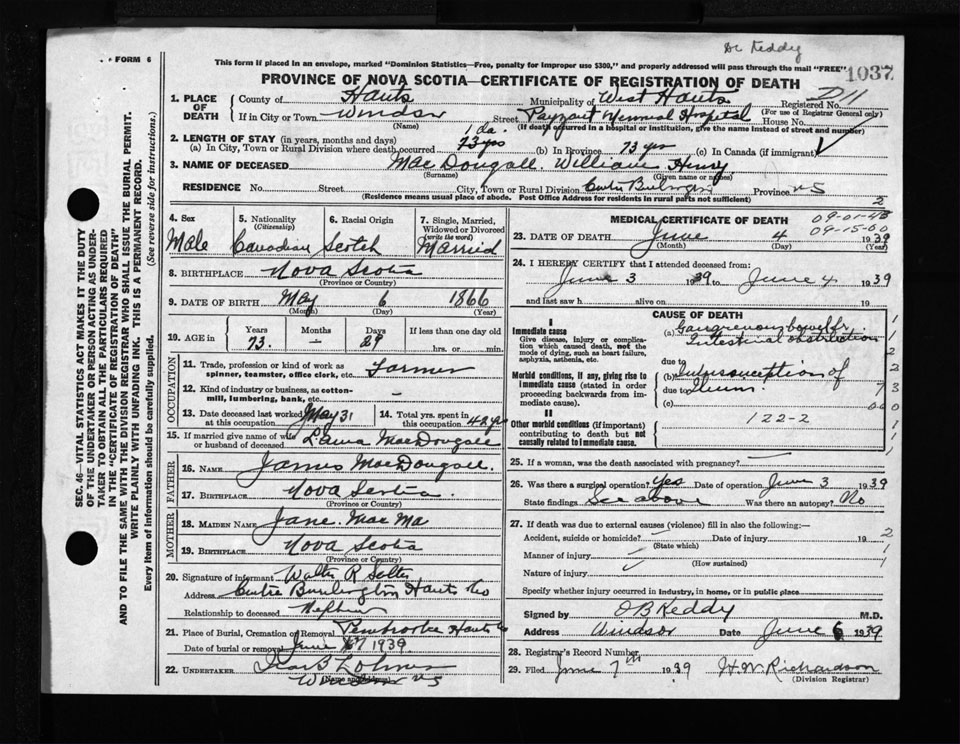 Dr Reddy
FORM 6
This form if placed in an envelope, marked "Dominion Statistics—Free, penalty for improper use $300," and properly addressed will pass through the mail "FREE"
1037
PROVINCE OF NOVA SCOTIA—CERTIFICATE OF REGISTRATION OF DEATH
1. PLACE OF DEATH
County of Hants Municipality of West Hants Registered No. D11
(For use of Registrar General only)
If in City or Town Windsor Street Payzant Memorial Hospital House No.
(Name) (If death occurred in a hospital or institution, give the name instead of street and number)
2. LENGTH OF STAY (in years, months and days)
1 da.
(a) In City, Town or Rural Division where death occurred 73 yrs (b) In Province 73 yrs (c) In Canada (if immigrant)
3. NAME OF DECEASED MacDougall. William Henry
(Surname) (Given name or names)
RESIDENCE No. Street City, Town or Rural Division Centre Burlington Province NS
(Residence means usual place of abode. Post Office Address for residents in rural parts not sufficient)
2
4. Sex Male
5. Nationality (Citizenship) Canadian
6. Racial Origin Scotch
7. Single, Married, Widowed or Divorced (write the word) Married
8. BIRTHPLACE Nova Scotia
(Province or Country)
9. DATE OF BIRTH May 6 1866
(Month) (Day) (Year)
10. AGE in Years 73. Months — Days 29 If less than one day old hrs. or min.
OCCUPATION
11. Trade, profession or kind of work as spinner, teamster, office clerk, etc. Farmer
12. Kind of industry or business, as cotton-mill, lumbering, bank, etc. —
13. Date deceased last worked at this occupation May 31
14. Total yrs. spent in this occupation 48 yrs
15. If married give name of wife or husband of deceased Laura MacDougall
FATHER
16. NAME James MacDougall.
17. BIRTHPLACE Nova Scotia.
MOTHER
18. MAIDEN NAME Jane. Mac Ma
19. BIRTHPLACE Nova Scotia
(Province or Country)
20. Signature of informant Walter R Salter
Address Centre Burlington Hants Co
Relationship to deceased Nephew
21. Place of Burial, Cremation or Removal Pembroke Hants Co
Date of burial or removal June 7 1939
22. UNDERTAKER
(Name and address) Windsor NS
MEDICAL CERTIFICATE OF DEATH
09-01-48
09-15-00
23. DATE OF DEATH June 4 1939
(Month) (Day)
24. I HEREBY CERTIFY that I attended deceased from:
June 3 1939 to June 4 1939
and last saw h alive on 19
CAUSE OF DEATH
I
Immediate cause
Give disease, injury or complication which caused death, not the mode of dying, such as heart failure, asphyxia, asthenia, etc.
(a) Gangrenous bowel fr
Intestinal obstruction
due to
Morbid conditions, if any, giving rise to immediate cause (stated in order proceeding backwards from immediate cause).
(b) Intussusception of
due to Ileum.
(c)
II
Other morbid conditions (if important) contributing to death but not causally related to immediate cause.
122-2
25. If a woman, was the death associated with pregnancy?
26. Was there a surgical operation? Yes Date of operation June 3 1939
State findings See above Was there an autopsy? No
27. If death was due to external causes (violence) fill in also the following:—
Accident, suicide or homicide? Date of injury 19
(State which)
Manner of injury
(How sustained)
Nature of injury
Specify whether injury occurred in industry, in home, or in public place
Signed by O B Keddy M.D.
Address Windsor Date June 6 1939
28. Registrar's Record Number
29. Filed June 7th 1939 H.W. Richardson
(Division Registrar)
SEC. 46—VITAL STATISTICS ACT MAKES IT THE DUTY
OF THE UNDERTAKER OR PERSON ACTING AS UNDER-
TAKER TO OBTAIN ALL THE PARTICULARS REQUIRED
IN THE "CERTIFICATE OF REGISTRATION OF DEATH"
AND TO FILE THE SAME WITH THE DIVISION REGISTRAR WHO SHALL ISSUE THE BURIAL PERMIT.
WRITE PLAINLY WITH UNFADING INK. THIS IS A PERMANENT RECORD.
Every item of information should be carefully supplied. (See reverse side for instructions.)